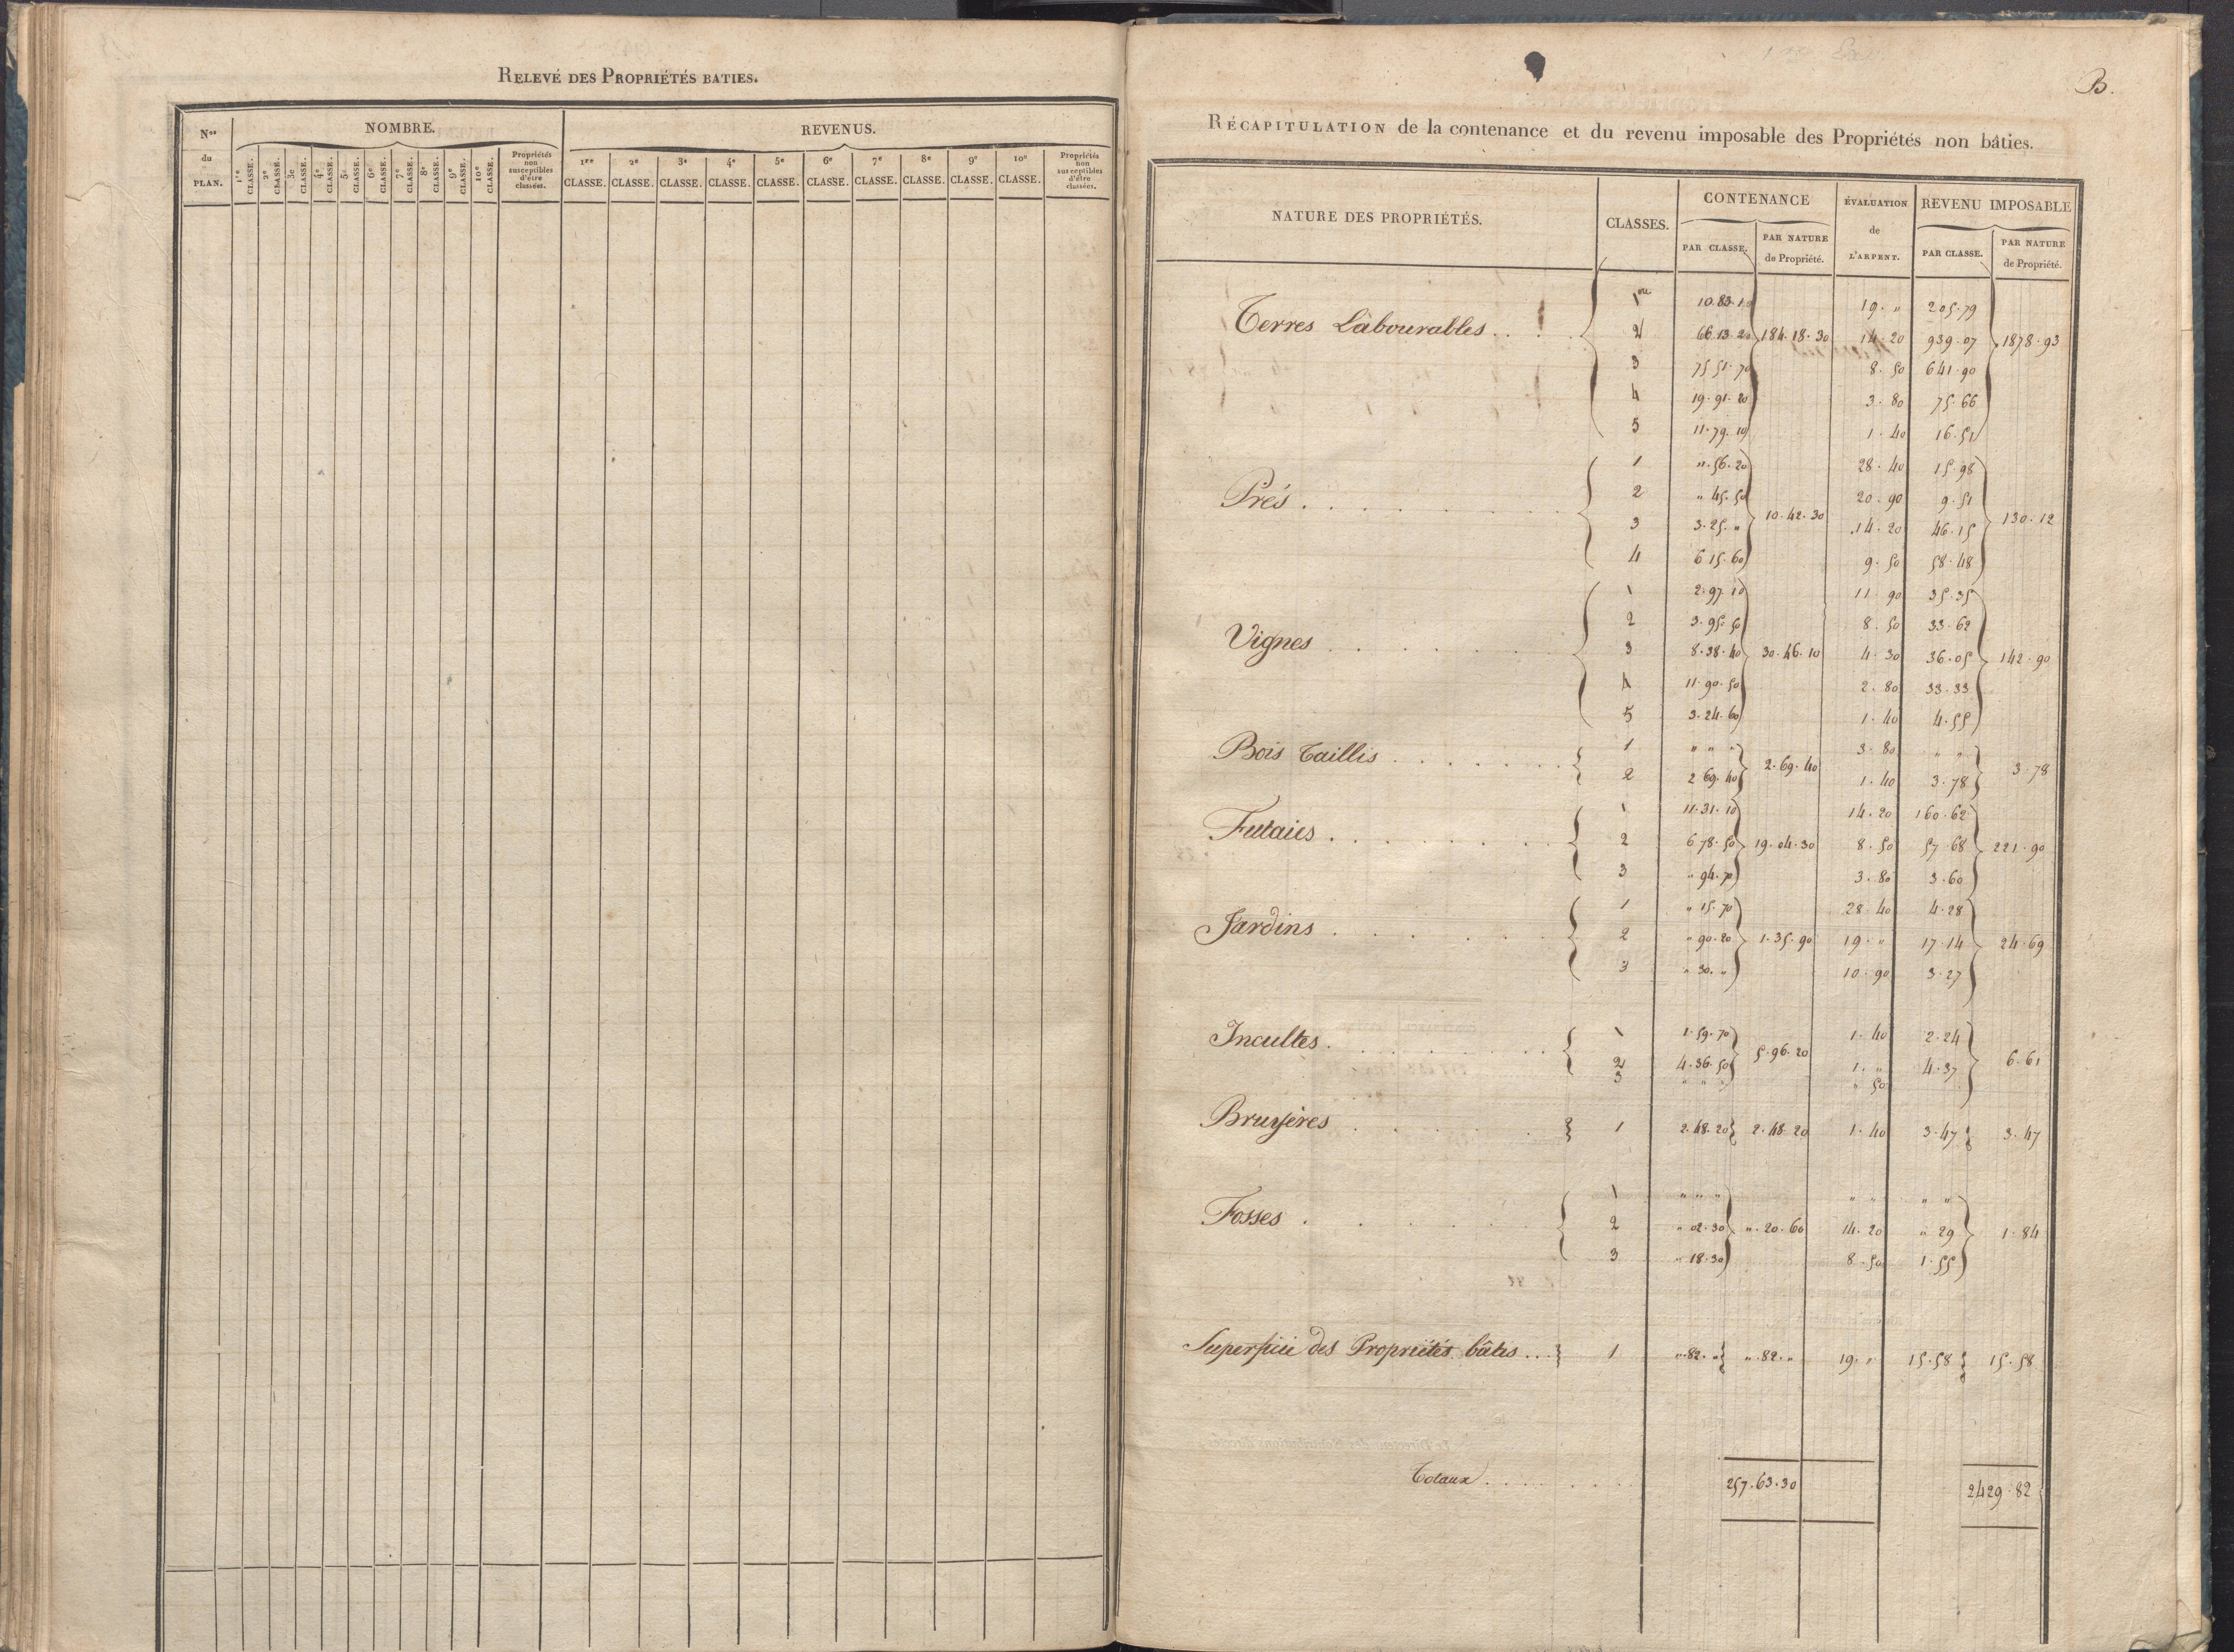 RELEVÉ DES PROPRIÉTÉS BATIES.
Nos du PLAN.
NOMBRE.
1re CLASSE. 2e CLASSE. 3e CLASSE. 4e CLASSE. 5e CLASSE. 6e CLASSE. 7e CLASSE. 8e CLASSE. 9e CLASSE. 10e CLASSE. Propriétés non susceptibles d'être classées.
REVENUS.
1re CLASSE. 2e CLASSE. 3e CLASSE. 4e CLASSE. 5e CLASSE. 6e CLASSE. 7e CLASSE. 8e CLASSE. 9e CLASSE. 10e CLASSE. Propriétés non susceptibles d'être classées.
B.
RÉCAPITULATION de la contenance et du revenu imposable des Propriétés non bâties.
NATURE DES PROPRIÉTÉS. CLASSES. CONTENANCE ÉVALUATION de L'ARPENT. REVENU IMPOSABLE
PAR CLASSE. PAR NATURE de Propriété. PAR CLASSE. PAR NATURE de Propriété.
1re 10.83.10 19. " 205.79
Terres Labourables . . 2 66.13.20 184.18.30 14.20 939.07 1878.93
3 75.51.70 8.50 641.90
4 19.91.20 3.80 75.66
5 11.79.10 1.40 16.51
1 ".56.20 28.40 15.98
Prés . . . 2 ".45.50 20.90 9.51
3 3.25." 10.42.30 14.20 46.15 130.12
4 6.15.60 9.50 58.48
1 2.97.10 11.90 35.35
2 3.95.50 8.50 33.62
Vignes . . . 3 8.38.40 30.46.10 4.30 36.05 142.90
4 11.90.50 2.80 33.33
5 3.24.60 1.40 4.55
Bois Taillis . . . 1 " " " 3.80 " "
2 2.69.40 2.69.40 1.40 3.78 3.78
1 11.31.10 14.20 160.62
Futaies . . . 2 6.78.50 19.04.30 8.50 57.68 221.90
3 ".94.70 3.80 3.60
1 ".15.70 28.40 4.28
Jardins . . . 2 ".90.20 1.35.90 19. " 17.14 24.69
3 ".30." 10.90 3.27
Incultes . . . 1 1.59.70 1.40 2.24
2 4.36.50 5.96.20 1. " 4.37 6.61
3 " " " ".50
Bruyères . . . 1 2.48.20 2.48.20 1.40 3.47 3.47
1 " " " " " " "
Fosses . . . 2 ".02.30 ".20.60 14.20 ".29 1.84
3 ".18.30 8.50 1.55
Superficie des Propriétés bâties . . . 1 ".82." ".82." 19. " 15.58 15.58
Totaux . . . 257.63.30 2429.82